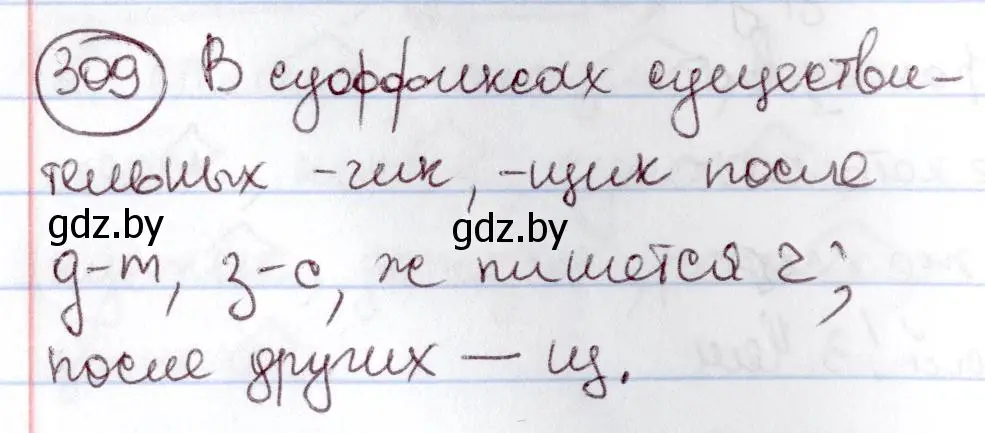 309 В суффиксах существи-
тельных -чик, -щик после
gdz.by gdz.by
д-т, з-с, ж пишется ч;
после других — щ.